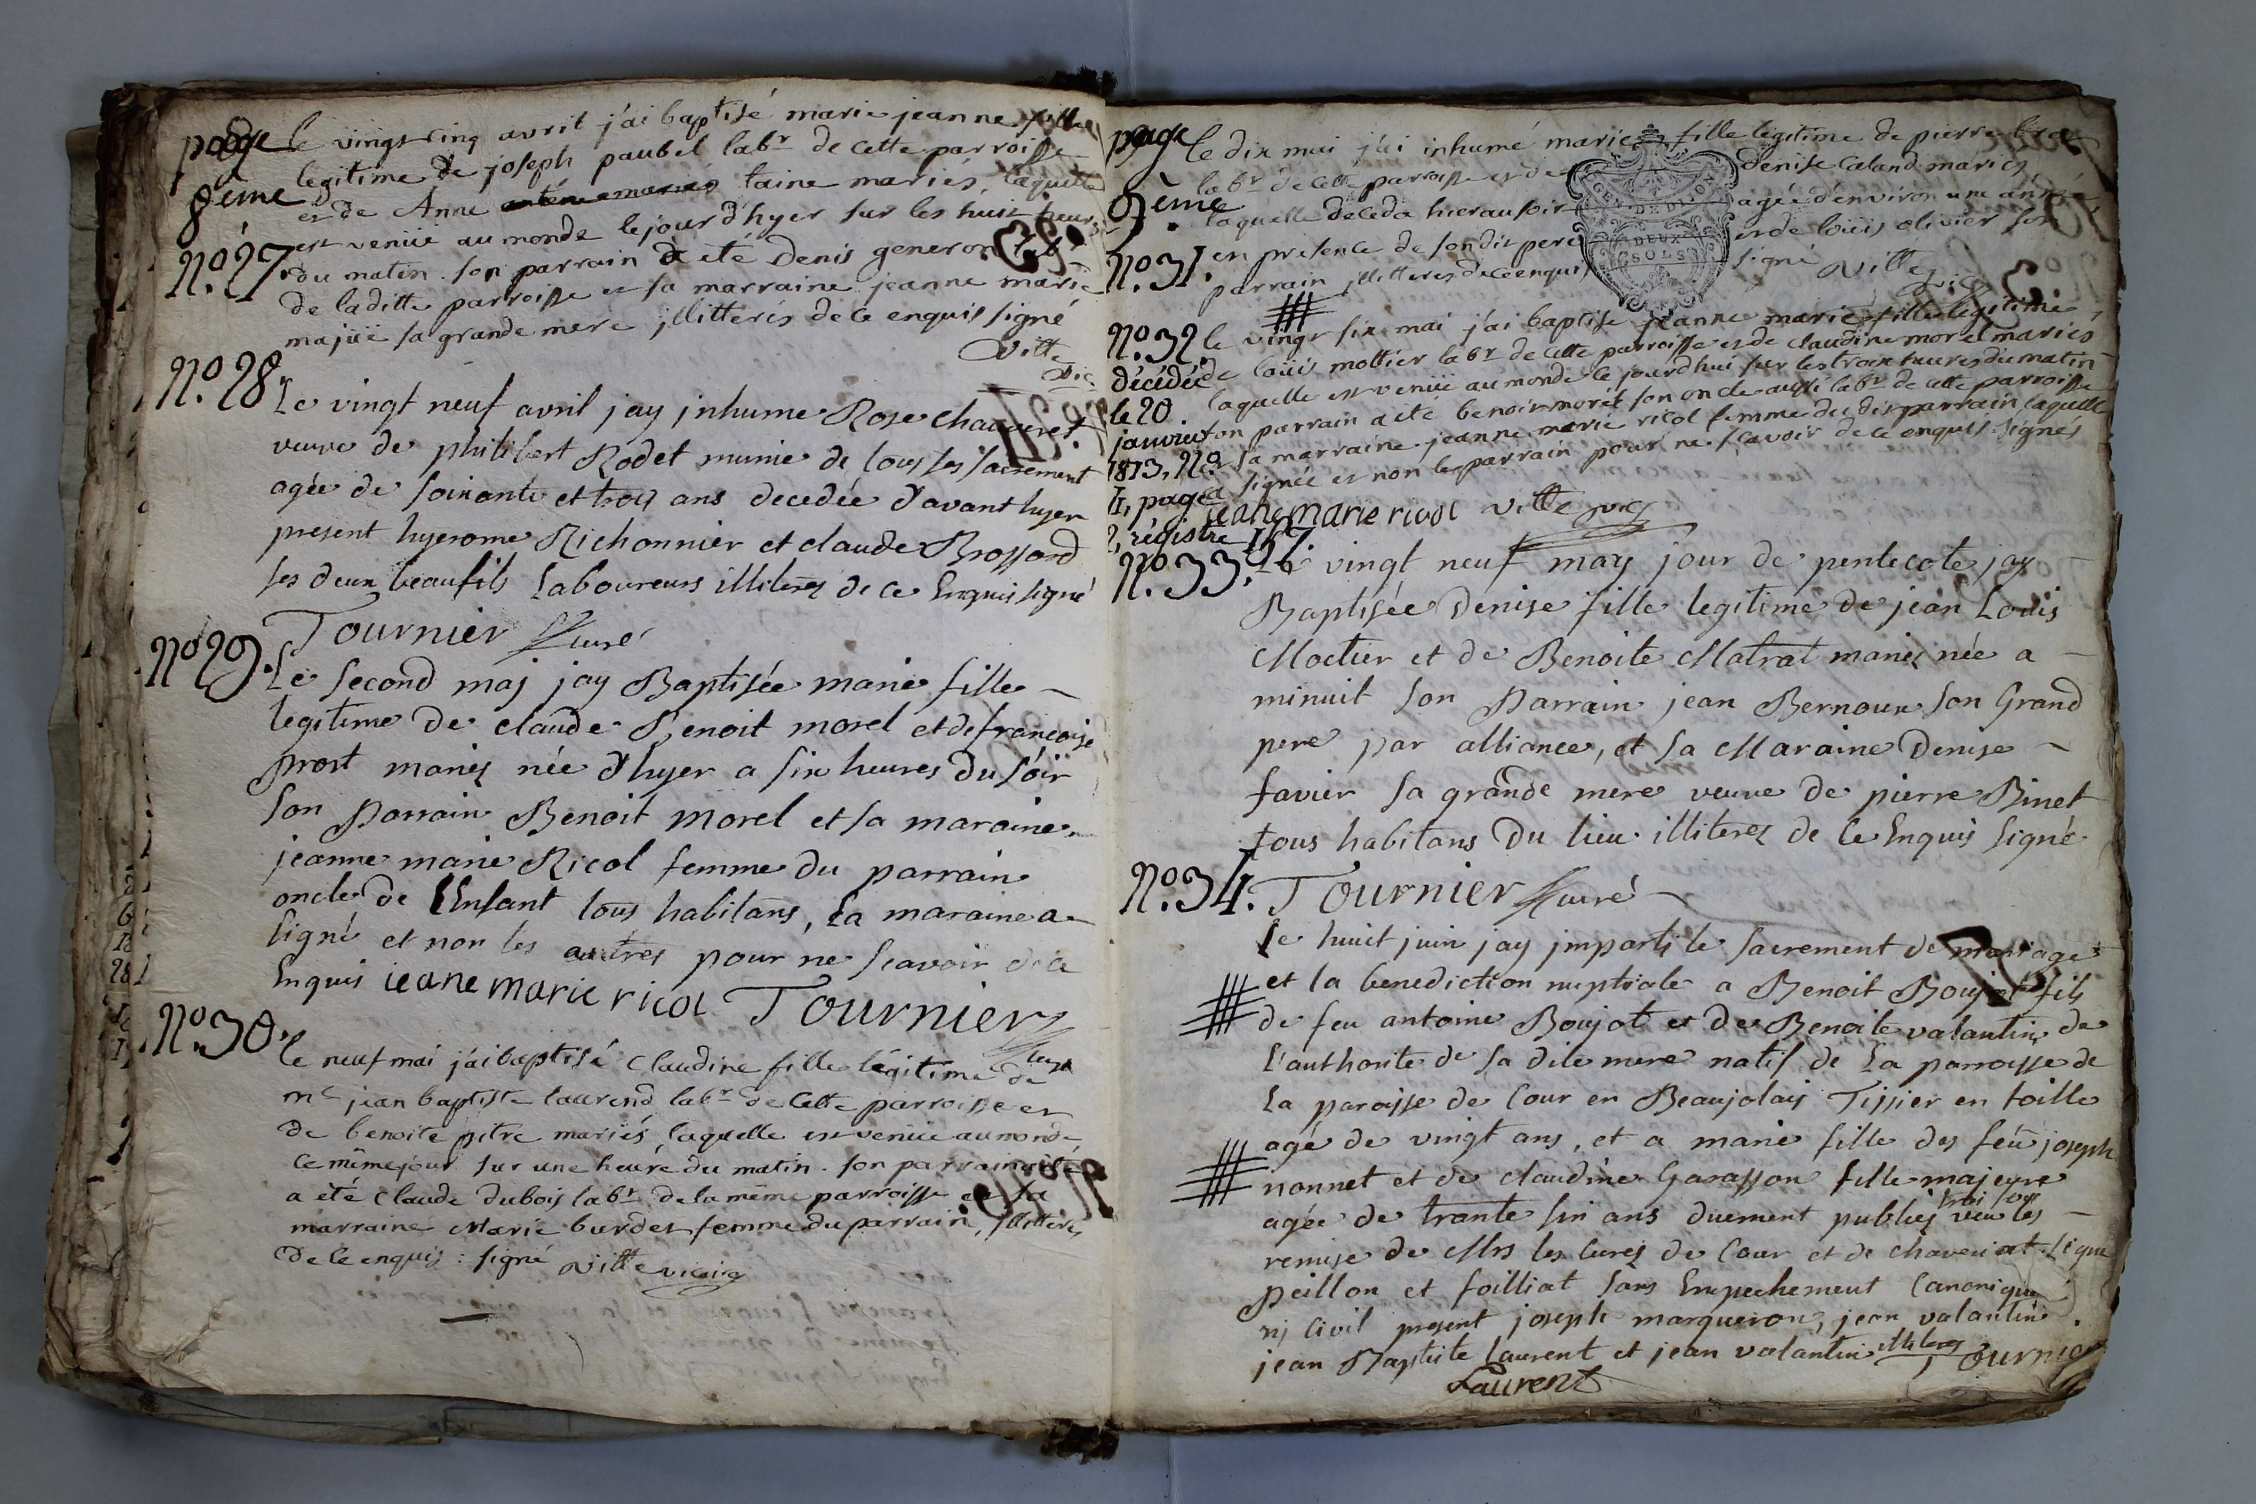 page
8ème
le vingt cinq avril j'ai baptisé marie jeanne fille
legitime de joseph paubel labr de cette parroisse
et de Anne taine mariés, laquelle
est venüe au monde le jourd'hyer sur les huit heures
No. 27.
du matin. son parrain a eté Denis generon
de laditte parroisse et sa marraine jeanne marie
majüe sa grande mere jllitterés de ce enquis signé
Ville
Vic
No. 28.
Le vingt neuf avril jay jnhume Rose chauveret
veuve de philibert Rodet munie de tous les sacrement
agée de soixante et trois ans decedée d'avant hyer
present hyerome Richonnier et claude Brossard
ses deux beaufils Laboureurs illiterez de ce Enquis signé
Tournier Curé
No 29.
Le second maj jay Baptisée marie fille
legitime de claude Benoit morel et de françoise
prost mariez née d'hyer a six heures du soir
son parrain Benoit morel et sa maraine
jeanne marie Ricol femme du parrain
oncle de l'Enfant tous habitans, La maraine a
signé et non les autres pour ne scavoir de ce
Enquis ieane marie ricol Tournier
curé
No. 30.
le neuf mai j'ai baptisé Claudine fille légitime de
mc jean baptiste laurend labr de cette parroisse et
de benoite pitre mariés, laquelle est venüe au monde
ce même jour sur une heure du matin. son parrain
a eté Claude dubois labr de la même parroisse et sa
marraine Marie burdet femme du parrain, jllitteres
de ce enquis : signé Ville vicaire
page
9ème
le dix mai j'ai inhumé marie fille legitime de pierre
labr de cette parroisse et de denise Caland mariez
laquelle deceda hier au soir agée d'environ une année,
No. 31.
en presence de son dit pere et de loüis olivier son
parrain jllitteres de ce enquis signé Ville vic
GEN. DE DIJON
DEUX
SOLS
No. 32.
décédée
le 20
janvier
1813, No
1, page
2, régistre
le vingt six mai j'ai baptisé jeanne marie fille legitime
de loüis mottier labr de cette parroisse et de claudine morel mariés
laquelle est venüe au monde le jourd'hui sur les trois heures du matin
son parrain a eté benoit morel son oncle aussi labr de cette parroisse
et sa marraine jeanne marie ricol femme du dit parrain laquelle
a signée et non le parrain pour ne scavoir de ce enquis signés
jeane marie ricol Ville vic
No. 33.
Le vingt neuf may jour de pentecote jay
Baptisée Denise fille legitime de jean Louis
Moctier et de Benoite Matrat mariez née a
minuit son Parrain jean Bernoux son Grand
pere par alliance, et sa Maraine Denise
favier sa grande mere veuve de pierre Binet
tous habitans du lieu illiterez de ce Enquis signé
No. 34.
Tournier Curé
Le huit juin jay jmparti le sacrement de mariage
et la benediction nuptiale a Benoit Boujot fils
de feu antoine Boujot et de Benoite valantin de
l'authorite de sa dite mere natif de La parroisse de
La paroisse de Cour en Beaujolais Tissier en toille
agé de vingt ans, et a marie fille des feu joseph
nonnet et de claudine Garasson fille majeure
agée de trante six ans duement publiez veu les
remise de Mrs les curez de Cour et de chaveriat signe
peillon et foilliat sans Empechement Canonique
nj civil present joseph marqueron, jean valantin
jean Baptiste Laurent et jean valantin illiterez Tournier
Laurent